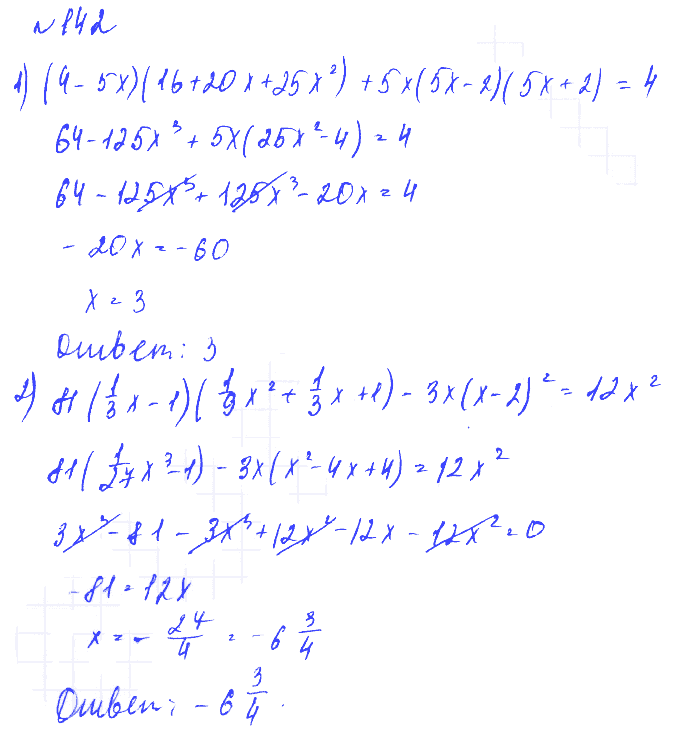 №142
1) (4 - 5x)(16 + 20x + 25x²) + 5x(5x - 2)(5x + 2) = 4
64 - 125x³ + 5x(25x² - 4) = 4
64 - 125x³ + 125x³ - 20x = 4
- 20x = -60
x = 3
Ответ: 3
2) 81(1/3 x - 1)(1/9 x² + 1/3 x + 1) - 3x(x - 2)² = 12x²
81(1/27 x³ - 1) - 3x(x² - 4x + 4) = 12x²
3x³ - 81 - 3x³ + 12x² - 12x - 12x² = 0
-81 = 12x
x = - 27/4 = -6 3/4
Ответ: -6 3/4.